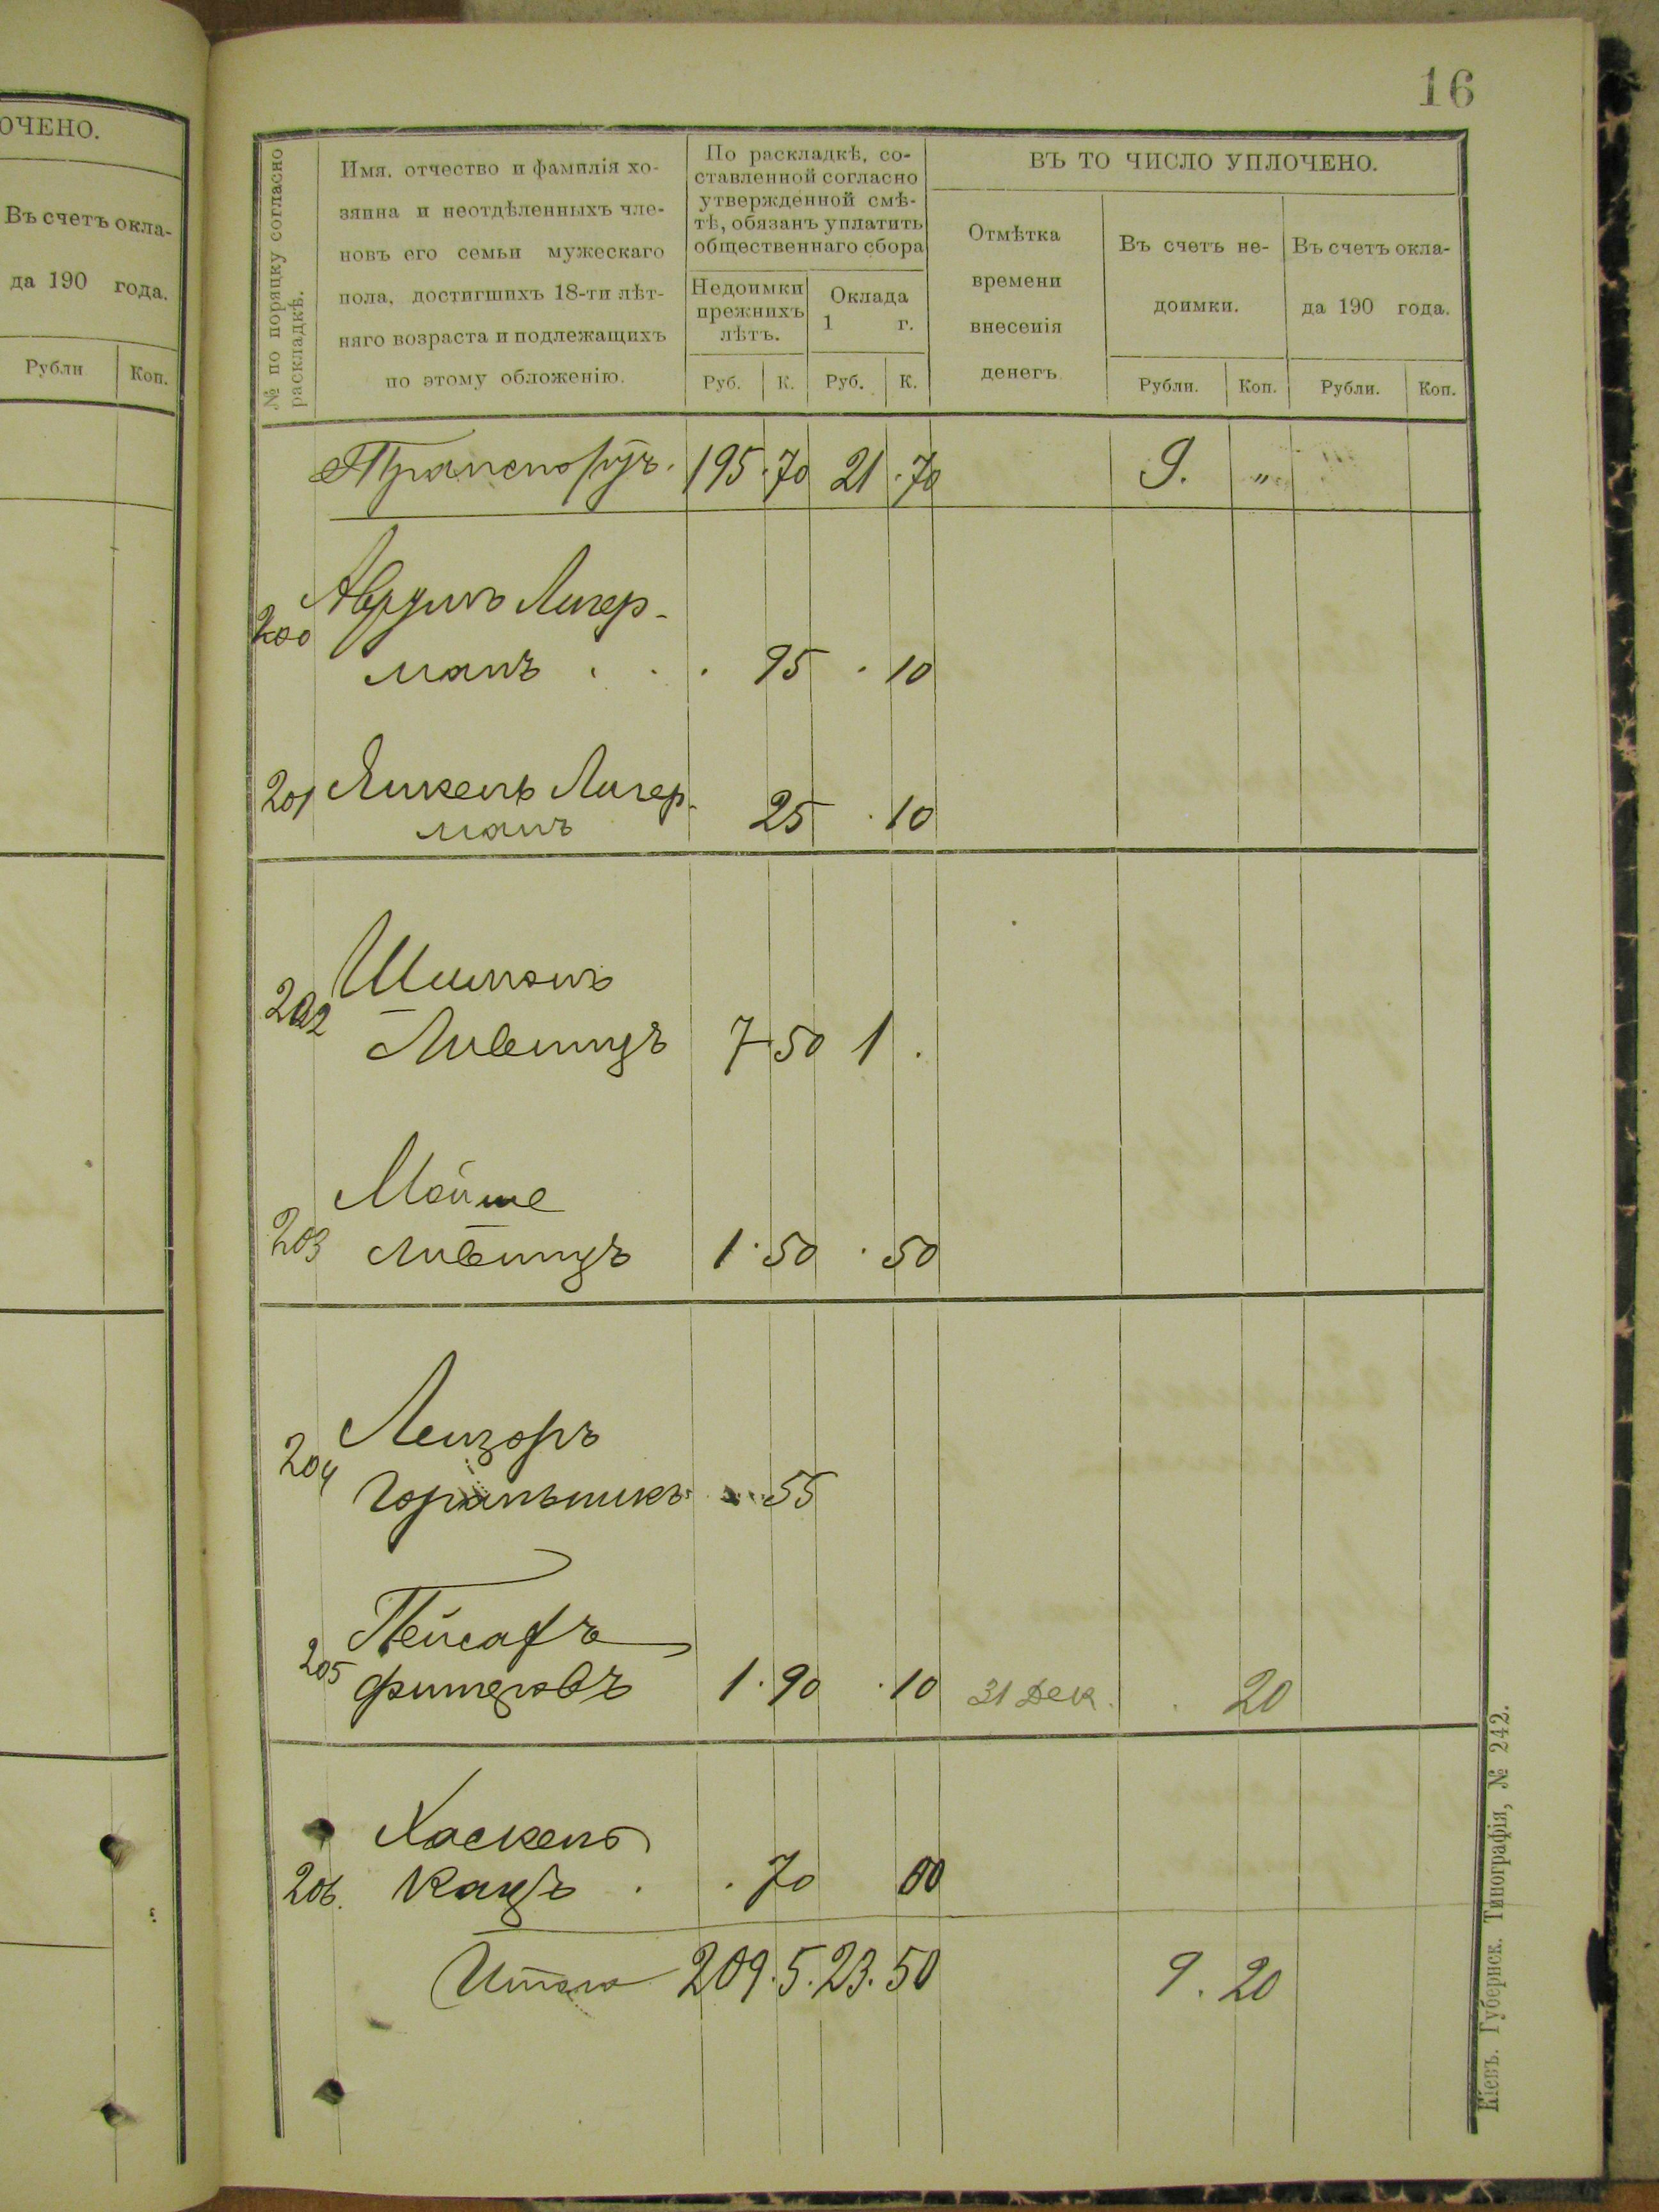 16
ОЧЕНО.
Въ счетъ окла-
да 190 года.
Рубли Коп.
№ по порядку согласно
раскладкѣ.
Имя, отчество и фамилія хо-
зяина и неотдѣленныхъ чле-
новъ его семьи мужескаго
пола, достигшихъ 18-ти лѣт-
няго возраста и подлежащихъ
по этому обложенію.
По раскладкѣ, со-
ставленной согласно
утвержденной смѣ-
тѣ, обязанъ уплатить
общественнаго сбора
Недоимки
прежнихъ
лѣтъ.
Руб. К.
Оклада
1 г.
Руб. К.
ВЪ ТО ЧИСЛО УПЛОЧЕНО.
Отмѣтка
времени
внесенія
денегъ
Въ счетъ не-
доимки.
Рубли. Коп.
Въ счетъ окла-
да 190 года.
Рубли. Коп.
Транспортъ. 195.70 21.70 9. "
200 Аврумъ Лигер-
манъ . . . 95 . 10
201 Янкель Лигер-
манъ 25 . 10
202 Шимонъ
Лившицъ 7 50 1 .
203 Мойше
Лившицъ 1.50 . 50
204 Лейзоръ
55
205 Пейсахъ
1.90 .10 31 Дек. . 20
Хаскель
206. Кацъ . . 70
Итого 209.5.23.50 9.20
Кіевъ. Губернск. Типографія, № 242.